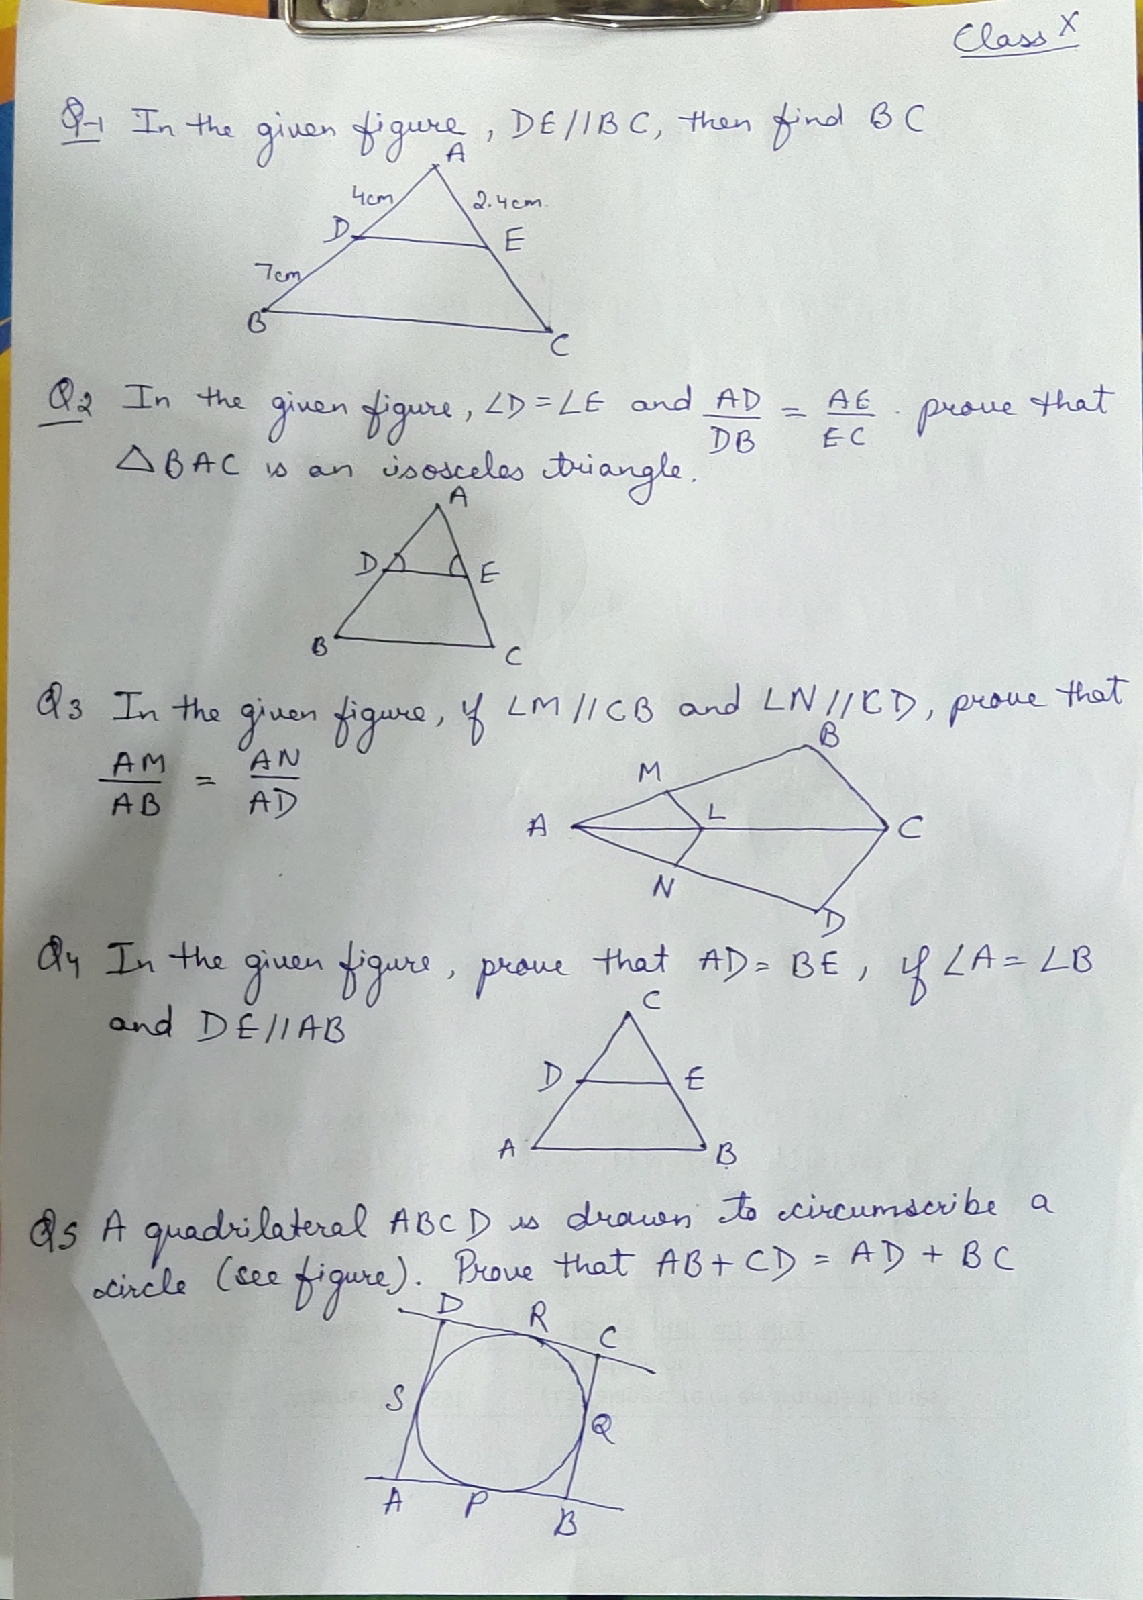 Class X
Q-1 In the given figure, DE//BC, then find BC
A
4cm
2.4cm.
D
E
7cm
B
C
Q2 In the given figure, ∠D=∠E and AD/DB = AE/EC. prove that
△BAC is an isosceles triangle.
A
D
E
B
C
Q3 In the given figure, if LM//CB and LN//CD, prove that
AM/AB = AN/AD
B
M
A
L
C
N
D
Q4 In the given figure, prove that AD=BE, if ∠A=∠B
and DE//AB
C
D
E
A
B
Q5 A quadrilateral ABCD is drawn to circumscribe a
circle (see figure). Prove that AB+CD=AD+BC
D
R
C
S
Q
A
P
B